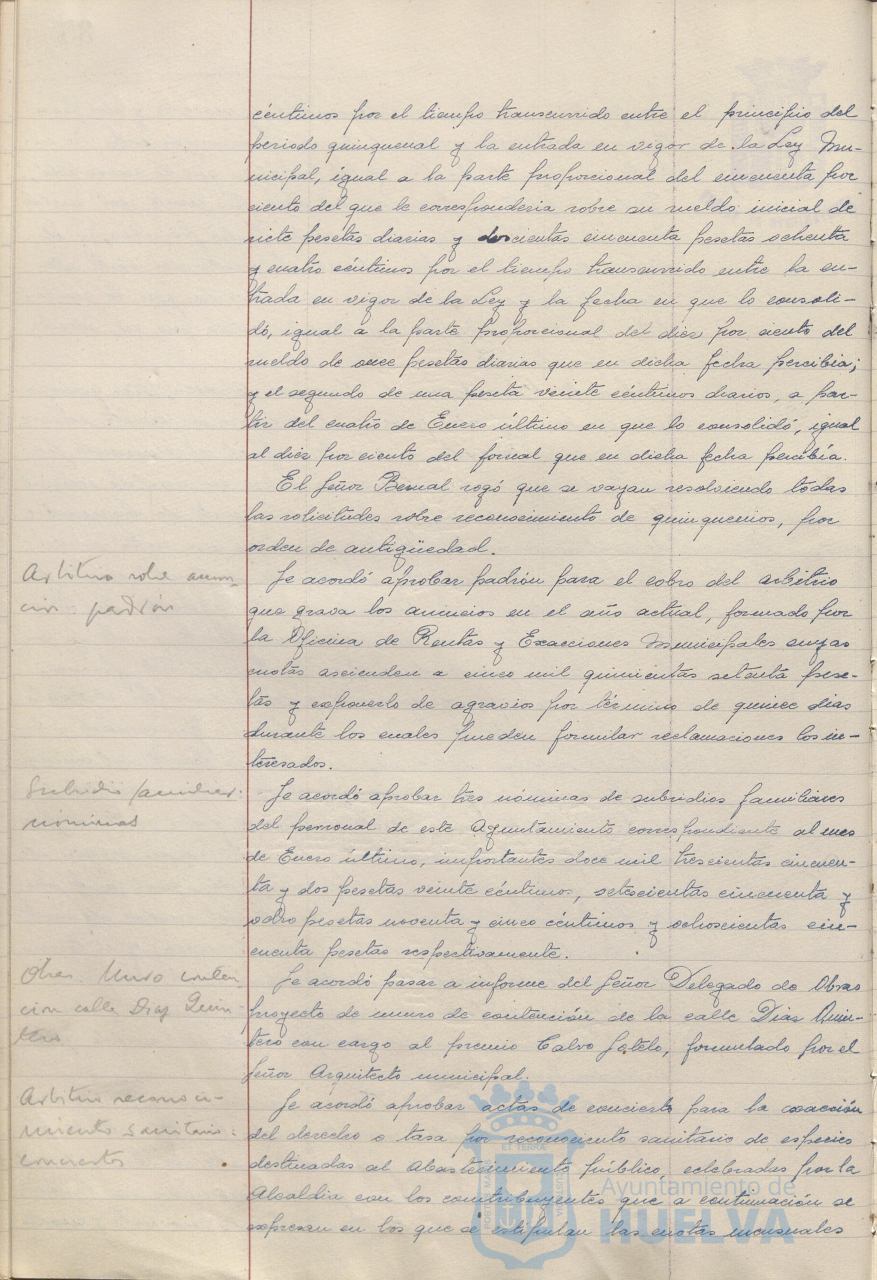 céntimos por el tiempo transcurrido entre el principio del
periodo quinquenal y la entrada en vigor de la Ley Mu-
nicipal, igual a la parte proporcional del cincuenta por
ciento del que le correspondería sobre su sueldo inicial de
siete pesetas diarias y doscientas cincuenta pesetas ochenta
y cuatro céntimos por el tiempo transcurrido entre la en-
trada en vigor de la Ley y la fecha en que lo consoli-
dó, igual a la parte proporcional del diez por ciento del
sueldo de once pesetas diarias que en dicha fecha percibía;
y el segundo de una peseta veinte céntimos diarios, a par-
tir del cuatro de Enero último en que lo consolidó, igual
al diez por ciento del jornal que en dicha fecha percibía.
El Señor Bernal rogó que se vayan resolviendo todas
las solicitudes sobre reconocimiento de quinquenios, por
orden de antigüedad.
Arbitrio sobre anun-
cios padrón
Se acordó aprobar padrón para el cobro del arbitrio
que grava los anuncios en el año actual, formado por
la Oficina de Rentas y Exacciones Municipales cuyas
cuotas ascienden a cinco mil quinientas setenta pese-
tas y exponerlo de agravios por término de quince dias
durante los cuales pueden formular reclamaciones los in-
teresados.
Subsidio familiar.
nóminas
Se acordó aprobar tres nóminas de subsidios familiares
del personal de este Ayuntamiento correspondiente al mes
de Enero último, importantes doce mil trescientas cincuen-
ta y dos pesetas veinte céntimos, setecientas cincuenta y
ocho pesetas noventa y cinco céntimos y ochocientas cin-
cuenta pesetas respectivamente.
Obras. Muro conten-
cion calle Diaz Quin-
tero
Se acordó pasar a informe del Señor Delegado de Obras
proyecto de muro de contención de la calle Diaz Quin-
tero con cargo al premio Calvo Sotelo, formulado por el
Señor Arquitecto municipal.
Arbitrio reconoci-
miento sanitario:
conciertos
Se acordó aprobar actas de concierto para la exacción
del derecho o tasa por reconocimiento sanitario de especies
destinadas al abastecimiento público, celebradas por la
Alcaldia con los contribuyentes que a continuación se
expresan en los que se estipulan las cuotas mensuales
Ayuntamiento de
HUELVA